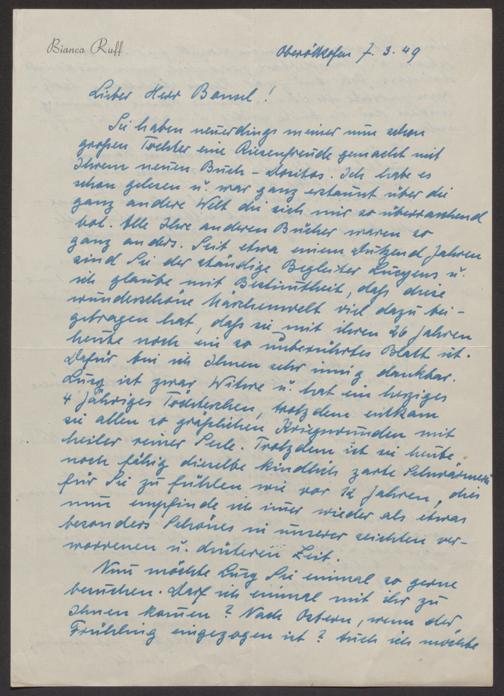 Bianca Ruff
Oberölkofen 7. 3. 49
Lieber Herr Bonsel!
Sie haben neuerdings meiner nun schon
großen Tochter eine Riesenfreude gemacht mit
Ihrem neuen Buch - Dositos. Ich habe es
schon gelesen u. war ganz erstaunt über die
ganz andere Welt die sich mir so überraschend
bot. Alle Ihre anderen Bücher waren so
ganz anders. Seit etwa einem Dutzend Jahren
sind Sie der ständige Begleiter Luzgens u.
ich glaube mit Bestimmtheit, daß diese
wunderschöne Märchenwelt viel dazu bei-
getragen hat, daß sie mit ihren 26 Jahren
heute noch ein so unberührtes Blatt ist.
Dafür bin ich Ihnen sehr innig dankbar.
Luzg ist zwar Witwe u. hat ein herziges
4 jähriges Töchterchen, trotzdem entkam
sie allen so gräßlichen Kriegswunden mit
heiler reiner Seele. Trotzdem ist sie heute
noch fähig dieselbe kindlich zarte Schwärmerei
für Sie zu fühlen wie vor 12 Jahren, dies
nun empfinde ich immer wieder als etwas
besonders Schönes in unserer seichten ver-
worrenen u. düsteren Zeit.
Nun möchte Luzg Sie einmal so gerne
besuchen. Darf ich einmal mit ihr zu
Ihnen kommen? Nach Ostern, wenn der
Frühling eingezogen ist? Auch ich möchte